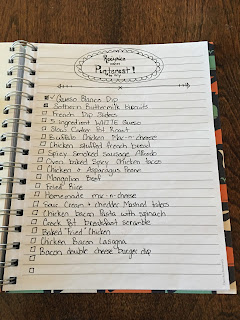 Recipes
Pinterest!
Queso Blanco Dip
Southern Buttermilk biscuits
French Dip Sliders
5 ingredient WHITE Queso
Slow Cooker Pot Roast
Buffalo Chicken Mac-n-cheese
Chicken stuffed french bread
Spicy smoked sausage Alfredo
Oven baked Spicy chicken tacos
Chicken & Asparagus Penne
Mongolian Beef
Fried Rice
Homemade mac-n-cheese
Sour Cream & chedder Mashed taters
Chicken bacon Pasta with spinach
Crock Pot breakfast scramble
Baked "fried" Chicken
Chicken Bacon Lasagna
Bacon double cheese burger dip